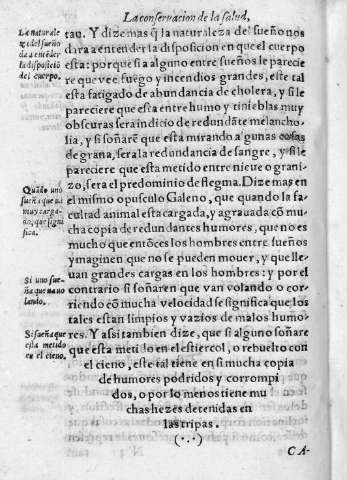 La conseruacion de la salud,
La naturale
za del sueño
da a entēder
la disposiciō
del cuerpo.
tan. Y dize mas q̃ la naturaleza del sueño nos
da ra a entender la disposicion en que el cuerpo
esta: porque si a alguno entre sueños le parecie
re que vee fuego y incendios grandes, este tal
esta fatigado de abundancia de cholera, y si le
pareciere que esta entre humo y tinieblas muy
obscuras sera indicio de redundāte melancho-
lia, y si soñare que esta mirando algunas cosas
de grana, sera la redundancia de sangre, y si le
pareciere que esta metido entre nieue o grani-
zo, sera el predominio de flegma. Dize mas en
Quādo uno
sueña que ua
muy carga-
do, que signi
fica.
el mismo opusculo Galeno, que quando la fa-
cultad animal esta cargada, y agrauada cō mu-
cha copia de redundantes humores, que no es
mucho que entōces los hombres entre sueños
ymaginen que no se pueden mouer, y que lle-
uan grandes cargas en los hombres: y por el
Si uno sue-
ña que ua uo
lando.
contrario si soñaren que van volando o cor-
riendo cō mucha velocidad se significa que los
tales estan limpios y vazios de malos humo-
Si sueña que
esta metido
en el cieno.
res. Y assi tambien dize, que si alguno soñare
que esta metido en el estiercol, o rebuelto con
el cieno, este tal tiene en si mucha copia
de humores podridos y corrompi
dos, o por lo menos tiene mu
chas hezes detenidas en
las tripas.
(·.·)
C A-